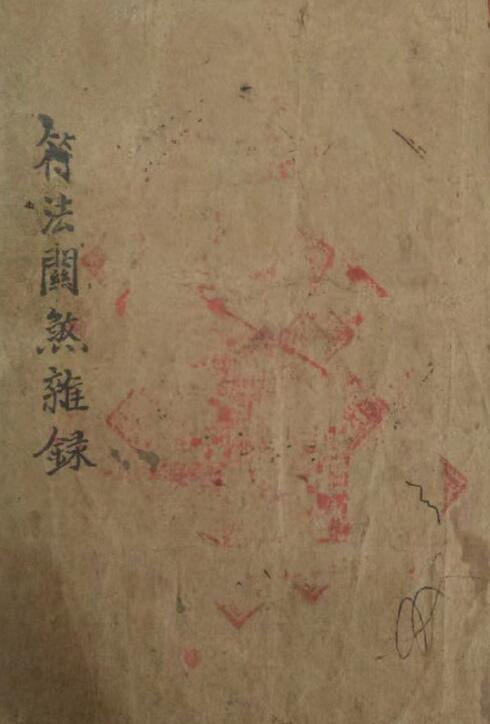 符法關煞雜録